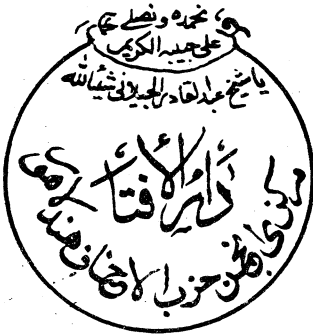 نحمدہ و نصلی
علیٰ حبیبہ الکریم
یا شیخ عبدالقادر الجیلانی شیئاً للہ
دار الإفتاء
مرکزی انجمن حزب الاحناف ہند لاہور